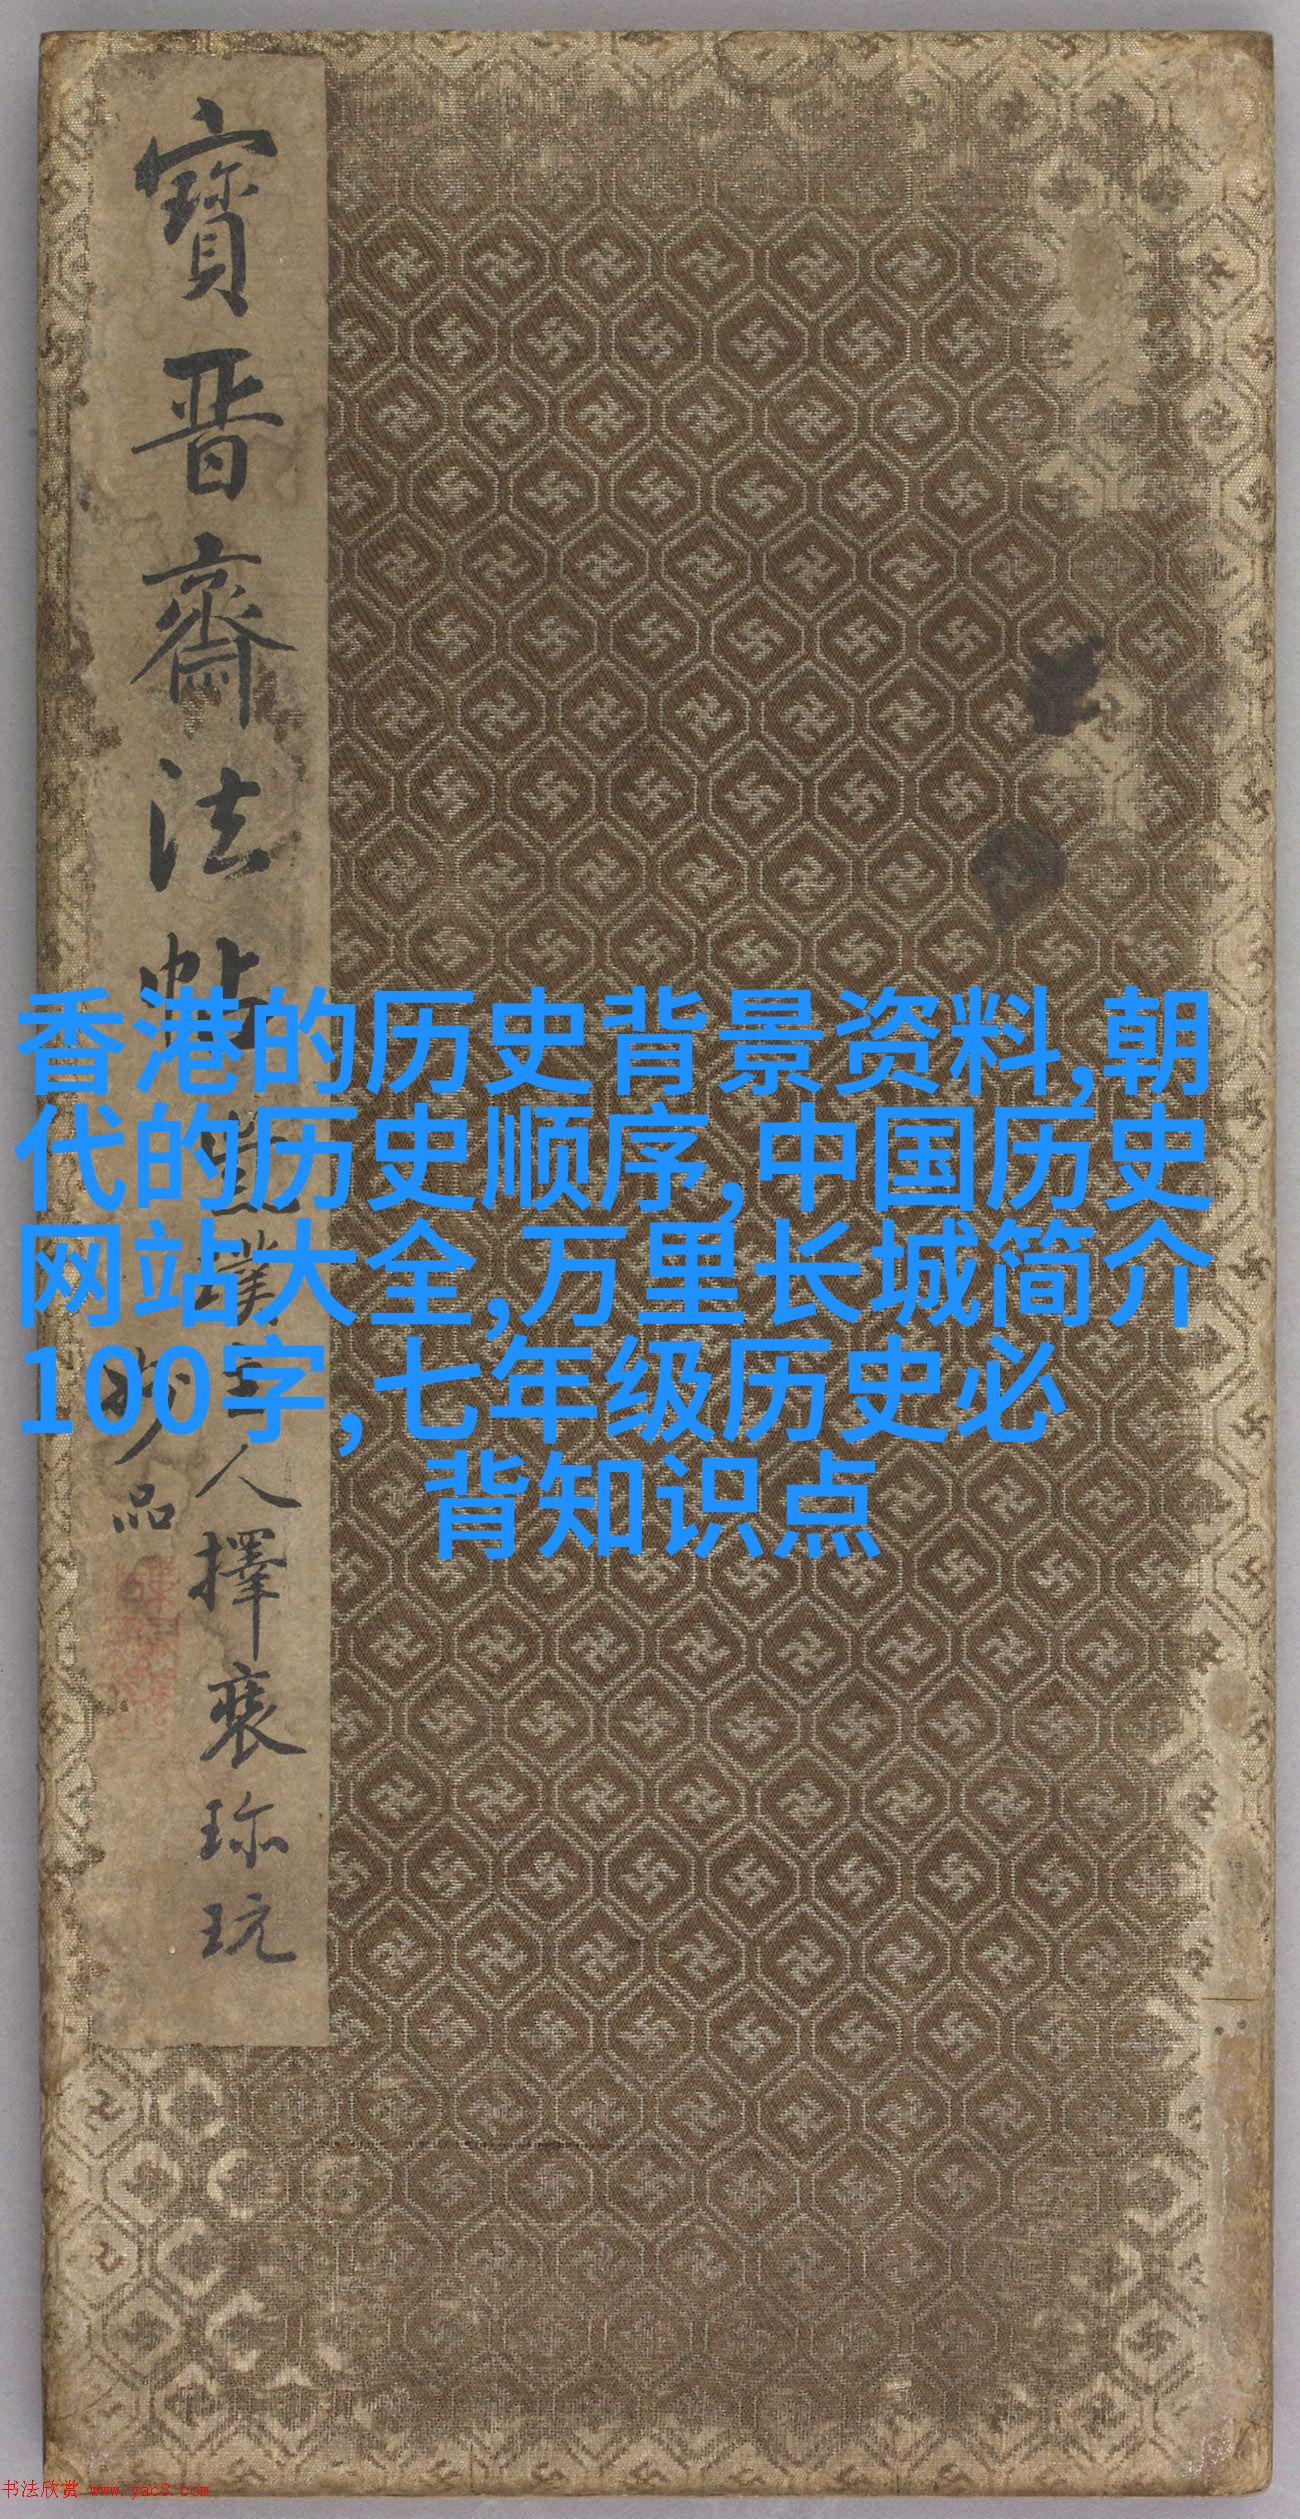 寶晋齋法帖
人擇裒珎玩
妙品
香港的历史背景资料,朝
代的历史顺序,中国历史
网站大全,万里长城简介
100字,七年级历史必
背知识点
书法欣赏 www.yac8.com